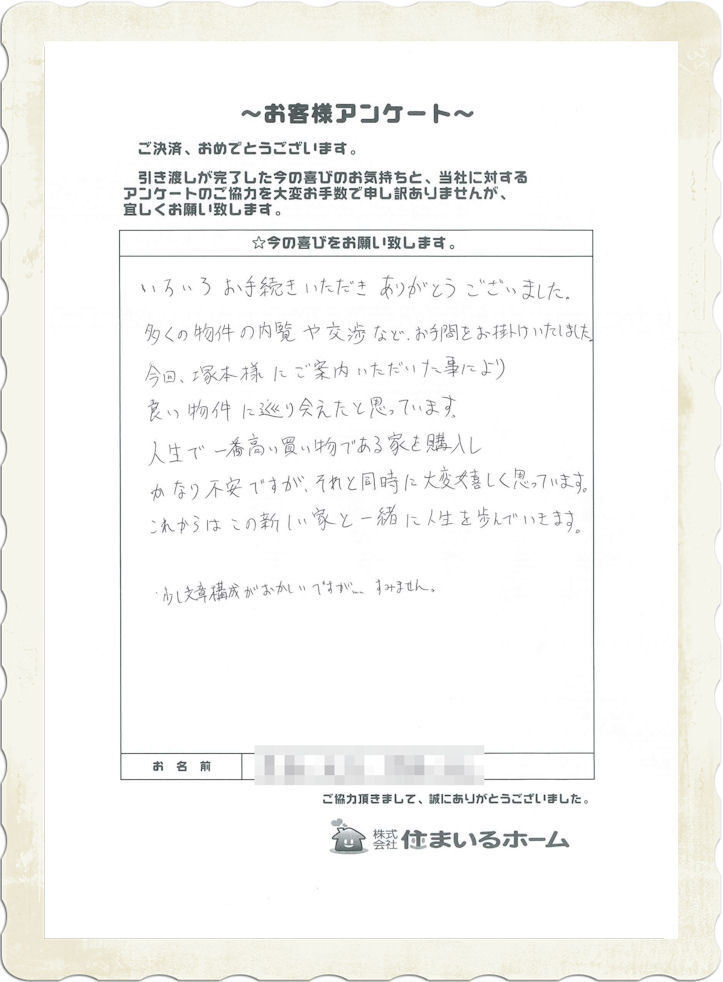 ～お客様アンケート～
ご決済、おめでとうございます。
引き渡しが完了した今の喜びのお気持ちと、当社に対する
アンケートのご協力を大変お手数で申し訳ありませんが、
宜しくお願い致します。
☆今の喜びをお願い致します。
いろいろお手続きいただきありがとうございました。
多くの物件の内覧や交渉など、お手間をお掛けいたしました。
今回、塚本様にご案内いただいた事により
良い物件に巡り会えたと思っています。
人生で一番高い買い物である家を購入し
かなり不安ですが、それと同時に大変嬉しく思っています。
これからはこの新しい家と一緒に人生を歩んでいきます。
少し文章構成がおかしいですが… すみません。
お名前
ご協力頂きまして、誠にありがとうございました。
株式会社 住まいるホーム